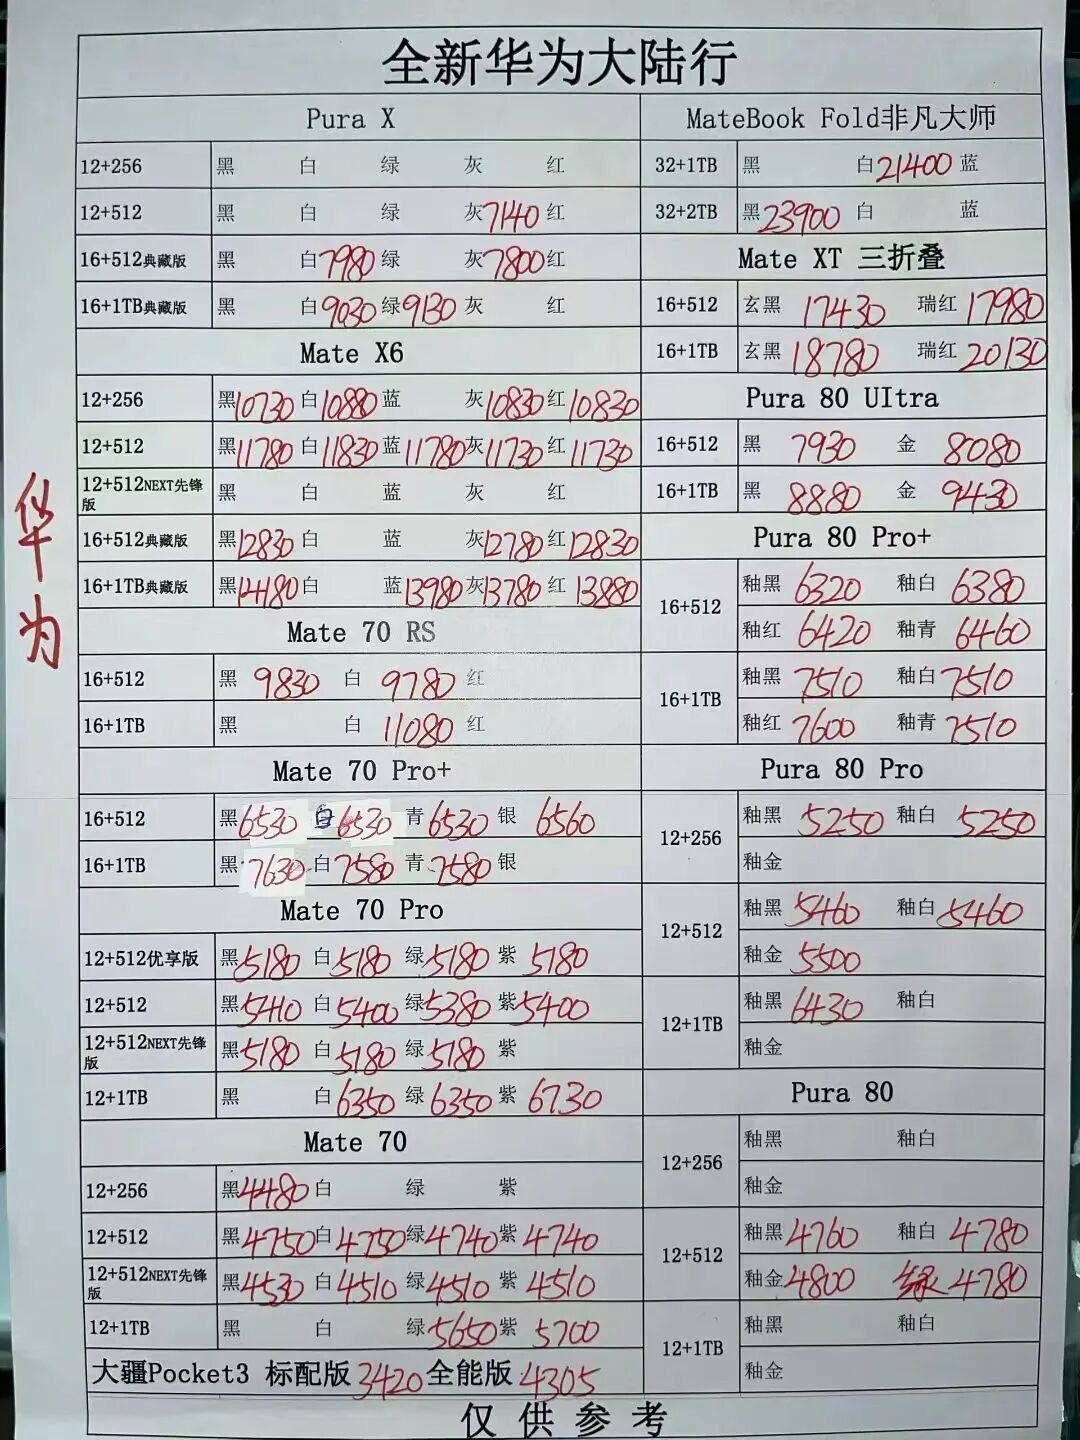 全新华为大陆行
Pura X
12+256 黑 白 绿 灰 红
12+512 黑 白 绿 灰7140 红
16+512典藏版 黑 白7980 绿 灰7800 红
16+1TB典藏版 黑 白9030 绿9130 灰 红
Mate X6
12+256 黑10730 白10880 蓝 灰10830 红10830
12+512 黑11780 白11830 蓝11780 灰11730 红11730
12+512NEXT先锋版 黑 白 蓝 灰 红
16+512典藏版 黑12830 白 蓝 灰12780 红12830
16+1TB典藏版 黑14180 白 蓝13980 灰13780 红13880
Mate 70 RS
16+512 黑 9830 白 9780 红
16+1TB 黑 白 11080 红
Mate 70 Pro+
16+512 黑6530 白6530 青6530 银 6560
16+1TB 黑7630 白7580 青7580 银
Mate 70 Pro
12+512优享版 黑5180 白5180 绿5180 紫5180
12+512 黑5410 白5400 绿5380 紫5400
12+512NEXT先锋版 黑5180 白5180 绿5180 紫
12+1TB 黑 白6350 绿6350 紫6730
Mate 70
12+256 黑4480 白 绿 紫
12+512 黑4750 白4750 绿4740 紫4740
12+512NEXT先锋版 黑4530 白4510 绿4510 紫4510
12+1TB 黑 白 绿5650 紫5700
大疆Pocket3 标配版3420 全能版4305
MateBook Fold非凡大师
32+1TB 黑 白21400 蓝
32+2TB 黑23900 白 蓝
Mate XT 三折叠
16+512 玄黑 17430 瑞红17980
16+1TB 玄黑 18780 瑞红20130
Pura 80 UItra
16+512 黑 7930 金 8080
16+1TB 黑 8880 金 9430
Pura 80 Pro+
16+512 釉黑 6320 釉白 6380
釉红 6420 釉青 6460
16+1TB 釉黑 7510 釉白7510
釉红 7600 釉青 7510
Pura 80 Pro
12+256 釉黑 5250 釉白 5250
釉金
12+512 釉黑 5460 釉白5460
釉金 5500
12+1TB 釉黑 6430 釉白
釉金
Pura 80
12+256 釉黑 釉白
釉金
12+512 釉黑4760 釉白 4780
釉金4800 绿4780
12+1TB 釉黑 釉白
釉金
仅供参考
华为